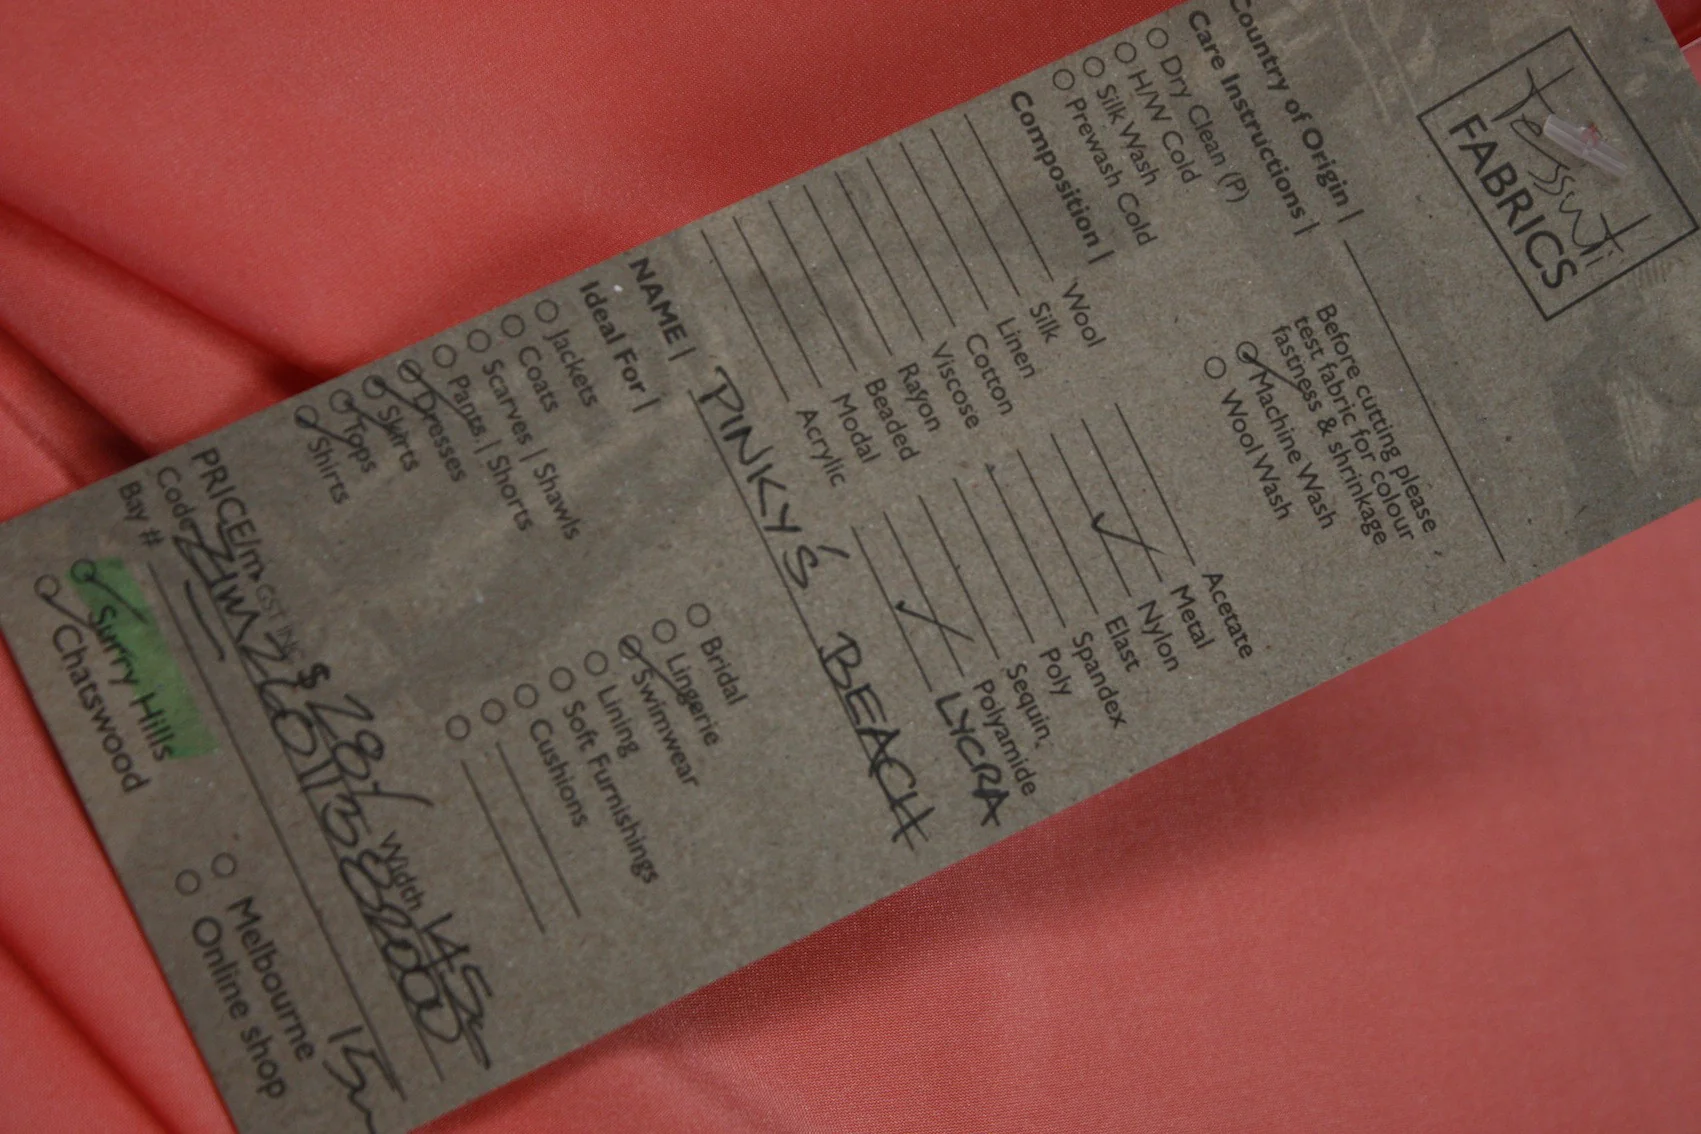 Tessuti
FABRICS
Country of Origin |
Care Instructions |
Dry Clean (P)
H/W Cold
Silk Wash
Prewash Cold
Before cutting please
test fabric for colour
fastness & shrinkage
Machine Wash
Wool Wash
Composition |
Wool
Silk
Linen
Cotton
Viscose
Rayon
Beaded
Modal
Acrylic
Acetate
Metal
Nylon
Elast
Spandex
Poly
Sequin
Polyamide
LYCRA
NAME | PINKY'S BEACH
Ideal For |
Jackets
Coats
Scarves | Shawls
Pants | Shorts
Dresses
Skirts
Tops
Shirts
Bridal
Lingerie
Swimwear
Lining
Soft Furnishings
Cushions
PRICE/m GST INC $ 28/ Width 145
Code
Bay #
Surry Hills
Chatswood
Melbourne
Online shop